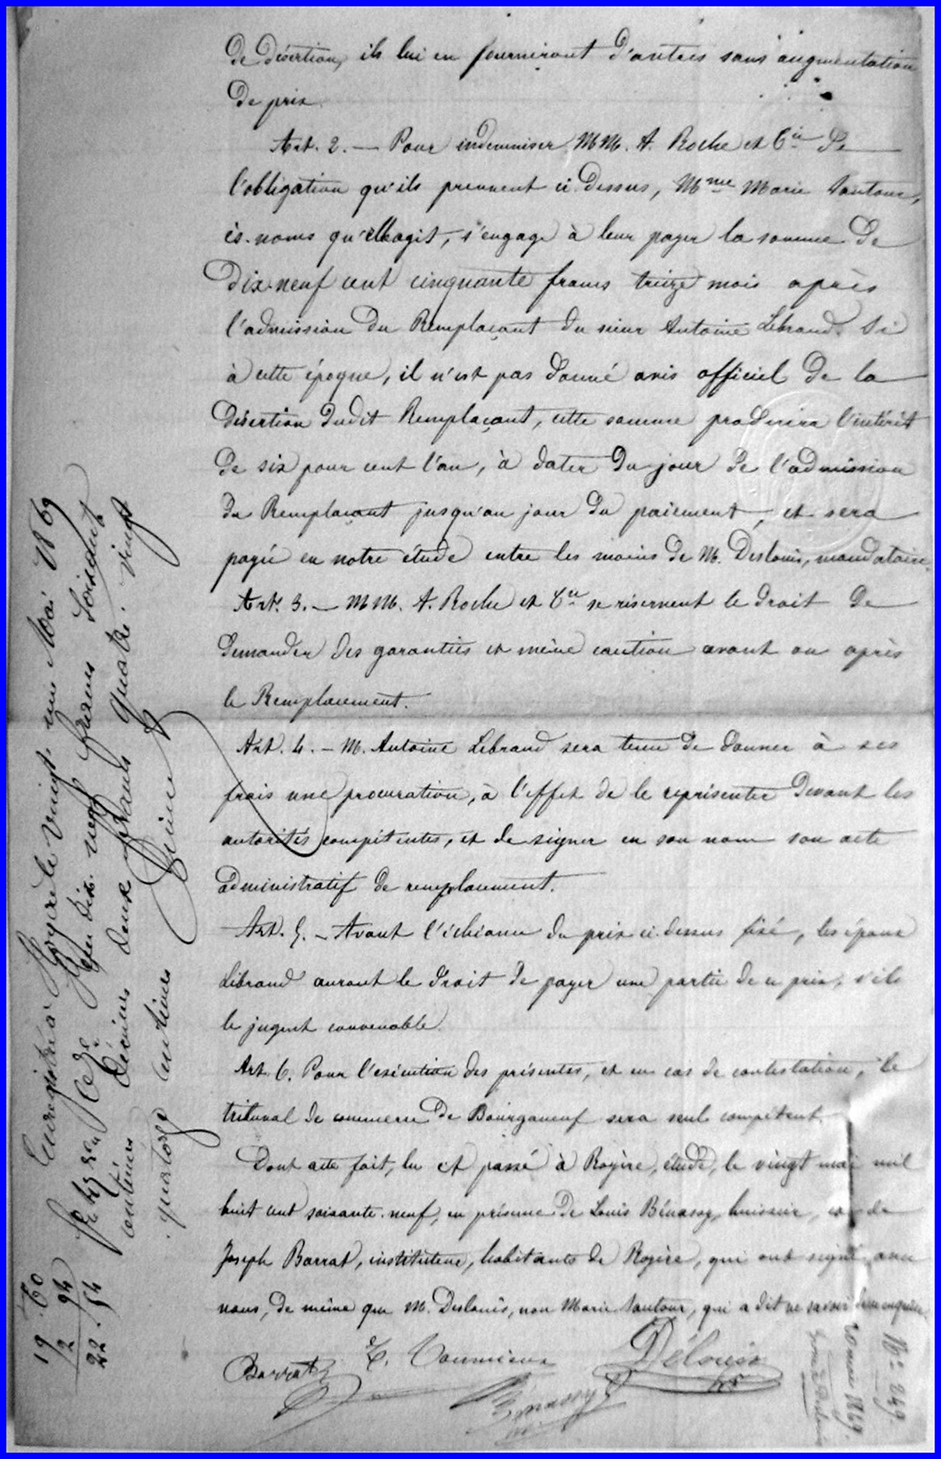 de désertion, ils lui en fourniront d'autres sans augmentation
de prix.
Art. 2. — Pour indemniser MM. A. Roche et Cie de
l'obligation qu'ils prennent ci-dessus, Mme Marie Santour,
ès-noms qu'elle agit, s'engage à leur payer la somme de
Dix-neuf cent cinquante francs treize mois après
l'admission du Remplaçant du sieur Antoine Lebraud. Si
à cette époque, il n'est pas donné avis officiel de la
désertion dudit Remplaçant, cette somme produira l'intérêt
de six pour cent l'an, à dater du jour de l'admission
du Remplaçant jusqu'au jour du paiement, et sera
payée en notre étude entre les mains de M. Deslouis, mandataire.
Art. 3. — MM. A. Roche et Cie se réservent le droit de
demander des garanties et même caution avant ou après
le Remplacement.
Art. 4. — M. Antoine Lebraud sera tenu de donner à ses
frais une procuration, à l'effet de le représenter devant les
autorités compétentes, et de signer en son nom son acte
administratif de remplacement.
Art. 5. — Avant l'échéance du prix ci-dessus fixé, les époux
Lebraud auront le droit de payer une partie de ce prix, s'ils
le jugent convenable.
Art. 6. Pour l'exécution des présentes, et en cas de contestation, le
tribunal de commerce de Bourganeuf sera seul compétent.
Dont acte fait, lu et passé à Royère, étude, le vingt mai mil
huit cent soixante-neuf, en présence de Louis Bénassy, huissier, et de
Joseph Barrat, instituteur, habitants de Royère, qui ont signé avec
nous, de même que M. Deslouis, non Marie Santour, qui a dit ne savoir
Barrat
Bénassy
Enregistré à Royère le vingt un Mai 1869
Reçu dix neuf francs soixante
centimes Décimes deux francs quatre vingt
quatorze centimes
19.60
2 94
22.54
No 249.
20 mai 1869.